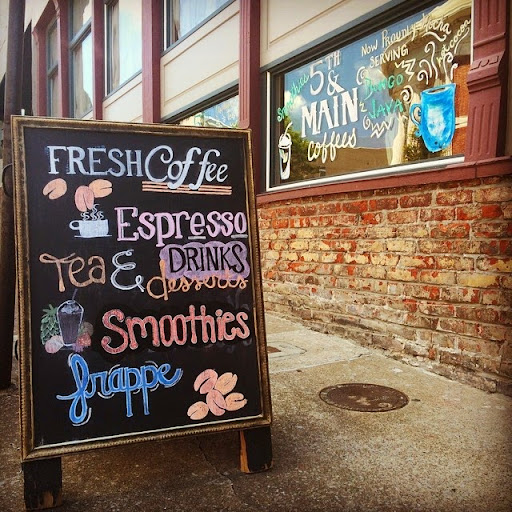 FRESH Coffee
Espresso
DRINKS
Tea &
desserts
Smoothies
frappe
Smoothies
5TH
& MAIN
coffees
Now Proudly
SERVING
Mocha
Java